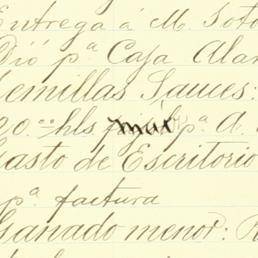 Entrega á M. Soto
Dió pª Caja Alar
Semillas Sauces:
20.00 hls mar pª A.
Gasto de Escritorio
pª factura
Ganado menor: R